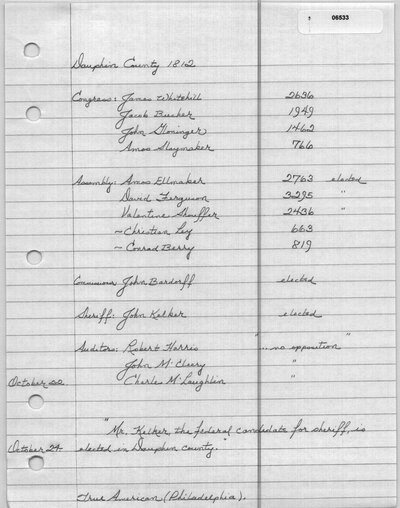 06533
Dauphin County 1812
Congress: James Whitehill 2636
Jacob Bucher 1949
John Gloninger 1462
Amos Slaymaker 766
Assembly: Amos Ellmaker 2763 elected
David Ferguson 3295 "
Valentine Shouffer 2436 "
~Christian Ley 663
~Conrad Berry 819
Commissioner: John Bardorff elected
Sheriff: John Kelker elected
" "
Auditors: Robert Harris ...no opposition
John McCleery "
October 22 Charles McLaughlin "
"Mr. Kelker, the federal candidate for sheriff, is
October 24 elected in Dauphin county."
True American (Philadelphia).